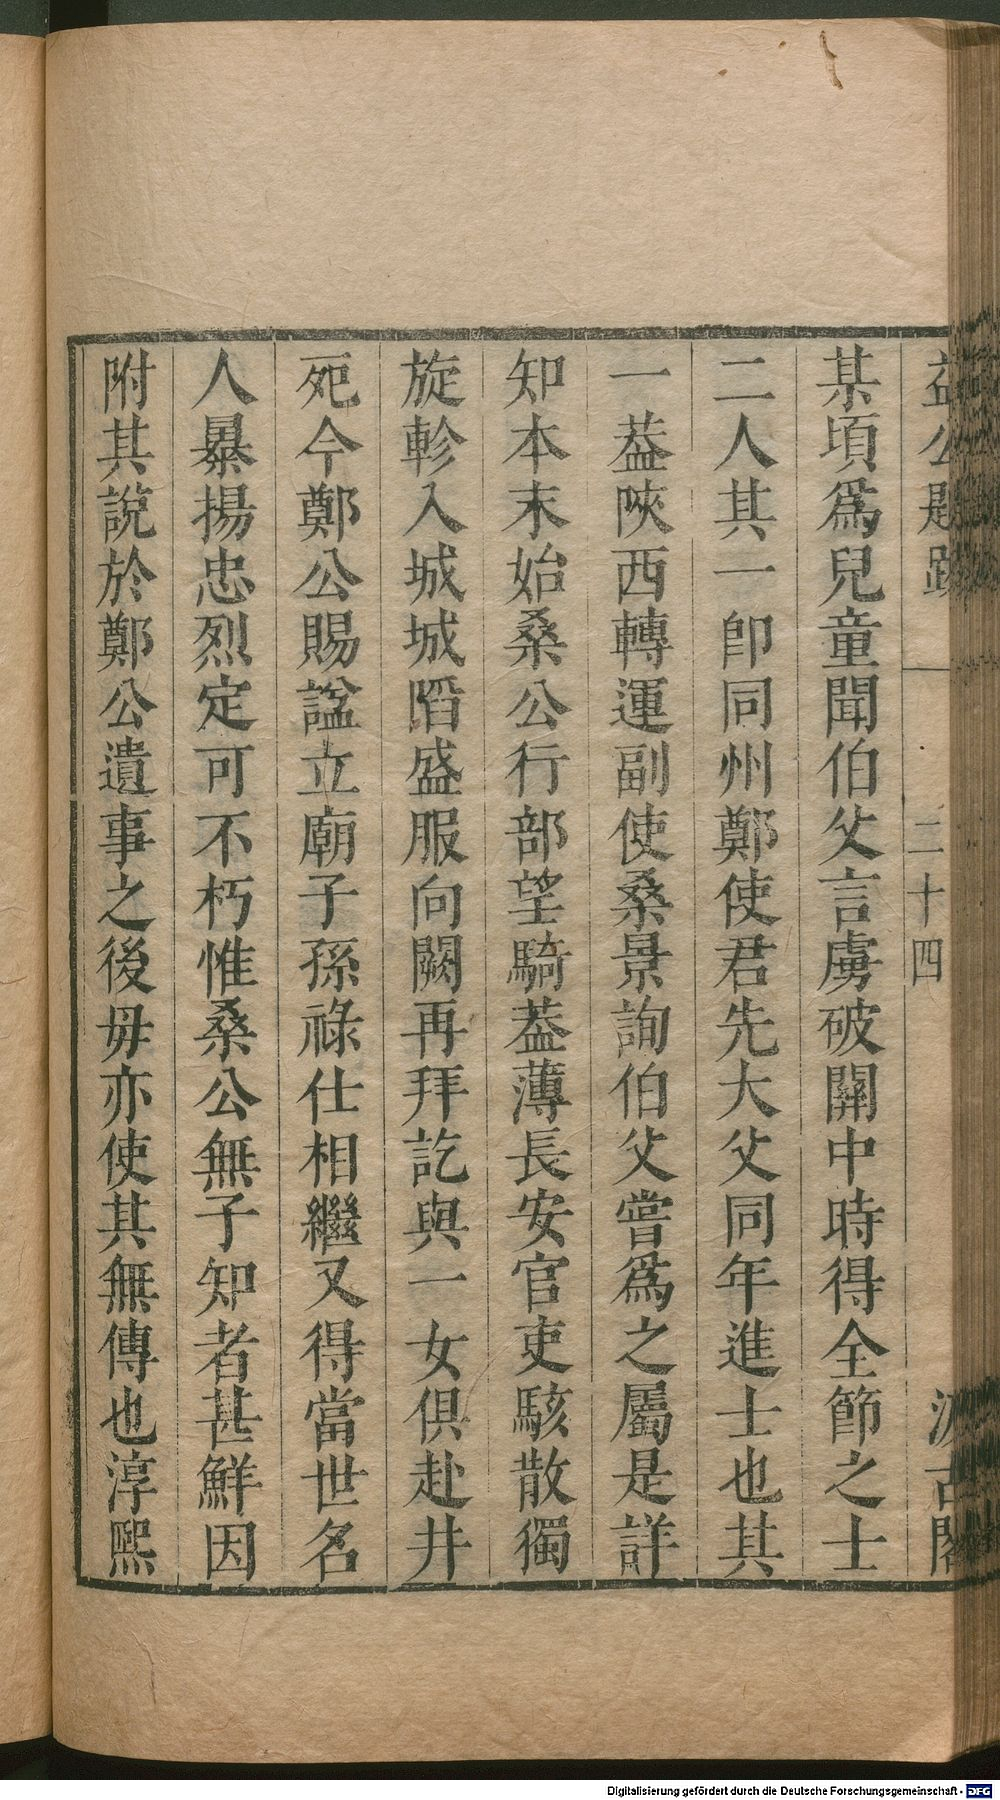 益公題跋 二十四 汲古閣
某頃爲兒童聞伯父言虜破關中時得全節之士
二人其一卽同州鄭使君先大父同年進士也其
一葢陜西轉運副使桑景詢伯父嘗爲之屬是詳
知本末始桑公行部望騎葢薄長安官吏駭散獨
旋軫入城城䧟盛服向闕再拜訖與一女俱赴井
死今鄭公賜諡立廟子孫祿仕相繼又得當世名
人暴揚忠烈定可不朽惟桑公無子知者甚鮮因
附其說於鄭公遺事之後毋亦使其無傳也淳熙
Digitalisierung gefördert durch die Deutsche Forschungsgemeinschaft - DFG